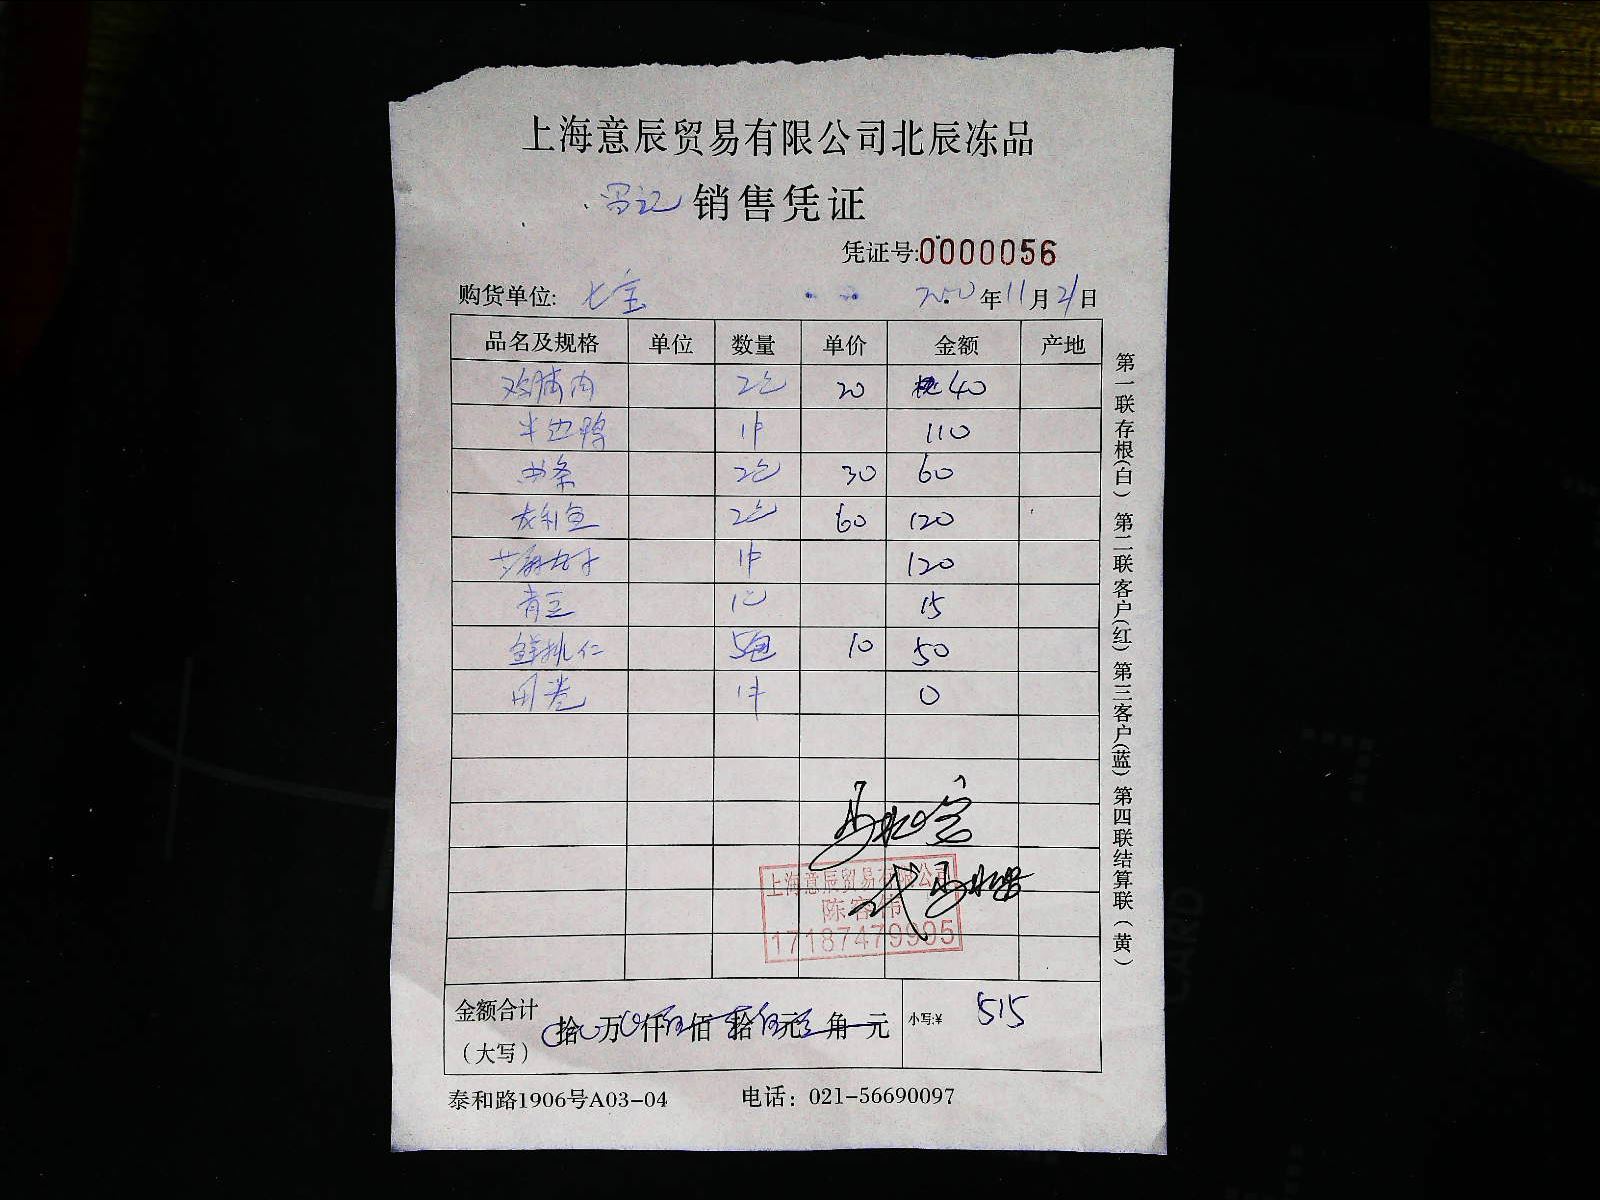 上海意辰贸易有限公司北辰冻品
冯记 销售凭证
凭证号:0000056
购货单位: 七宝 年11月21日
品名及规格 单位 数量 单价 金额 产地
鸡脯肉 2包 20 40
半边鸭 1件 110
2包 30 60
龙利鱼 2包 60 120
1件 120
青豆 1包 15
鲜桃仁 5包 10 50
1件 0
上海意辰贸易有限公司
陈容伟
17187479905
代
金额合计
(大写)
拾 万 仟 伍 佰 拾 伍 元 角 元
小写:¥ 515
泰和路1906号A03-04 电话：021-56690097
第一联存根(白) 第二联客户(红) 第三客户(蓝) 第四联结算联(黄)